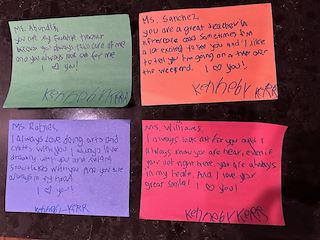 you are my favorite teacher
because you always take care of me
and you always look out for me
I ♡ you!
Kennedy Kerr
Ms. Sanchez,
you are a great teacher in
aftercare and sometimes I'm
a lot exciting to see you and I like
to tell you I'm going on a trip over
the weekend.
I ♡ you!
Kennedy Kerr
I always love doing arts and
crafts with you. I always love
drawing with you and making
snowflakes with you. And you are
always in my heart.
I ♡ you!
Kennedy Kerr
Ms. Williams,
I always look out for you and I
always know you are hear, even if
your not right here. you are always
in my heart. And I love your
great smile! I ♡ you!
Kennedy Kerr